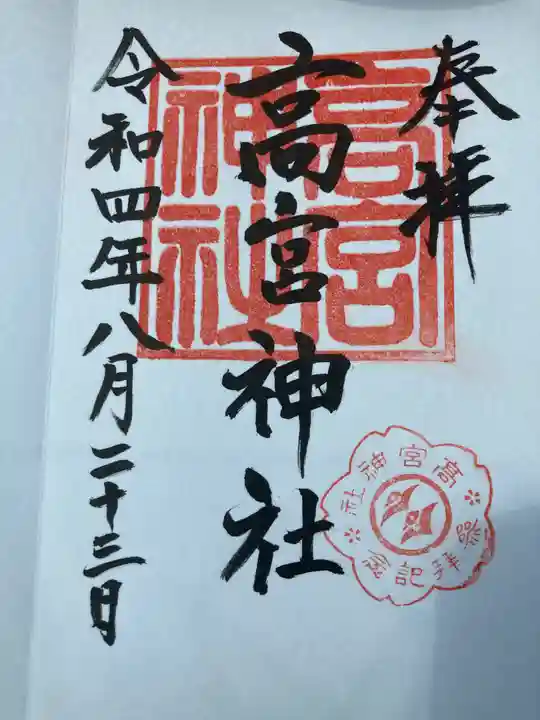 奉拝
高宮神社
令和四年八月二十三日
高宮
神社
高宮神社
参拝記念